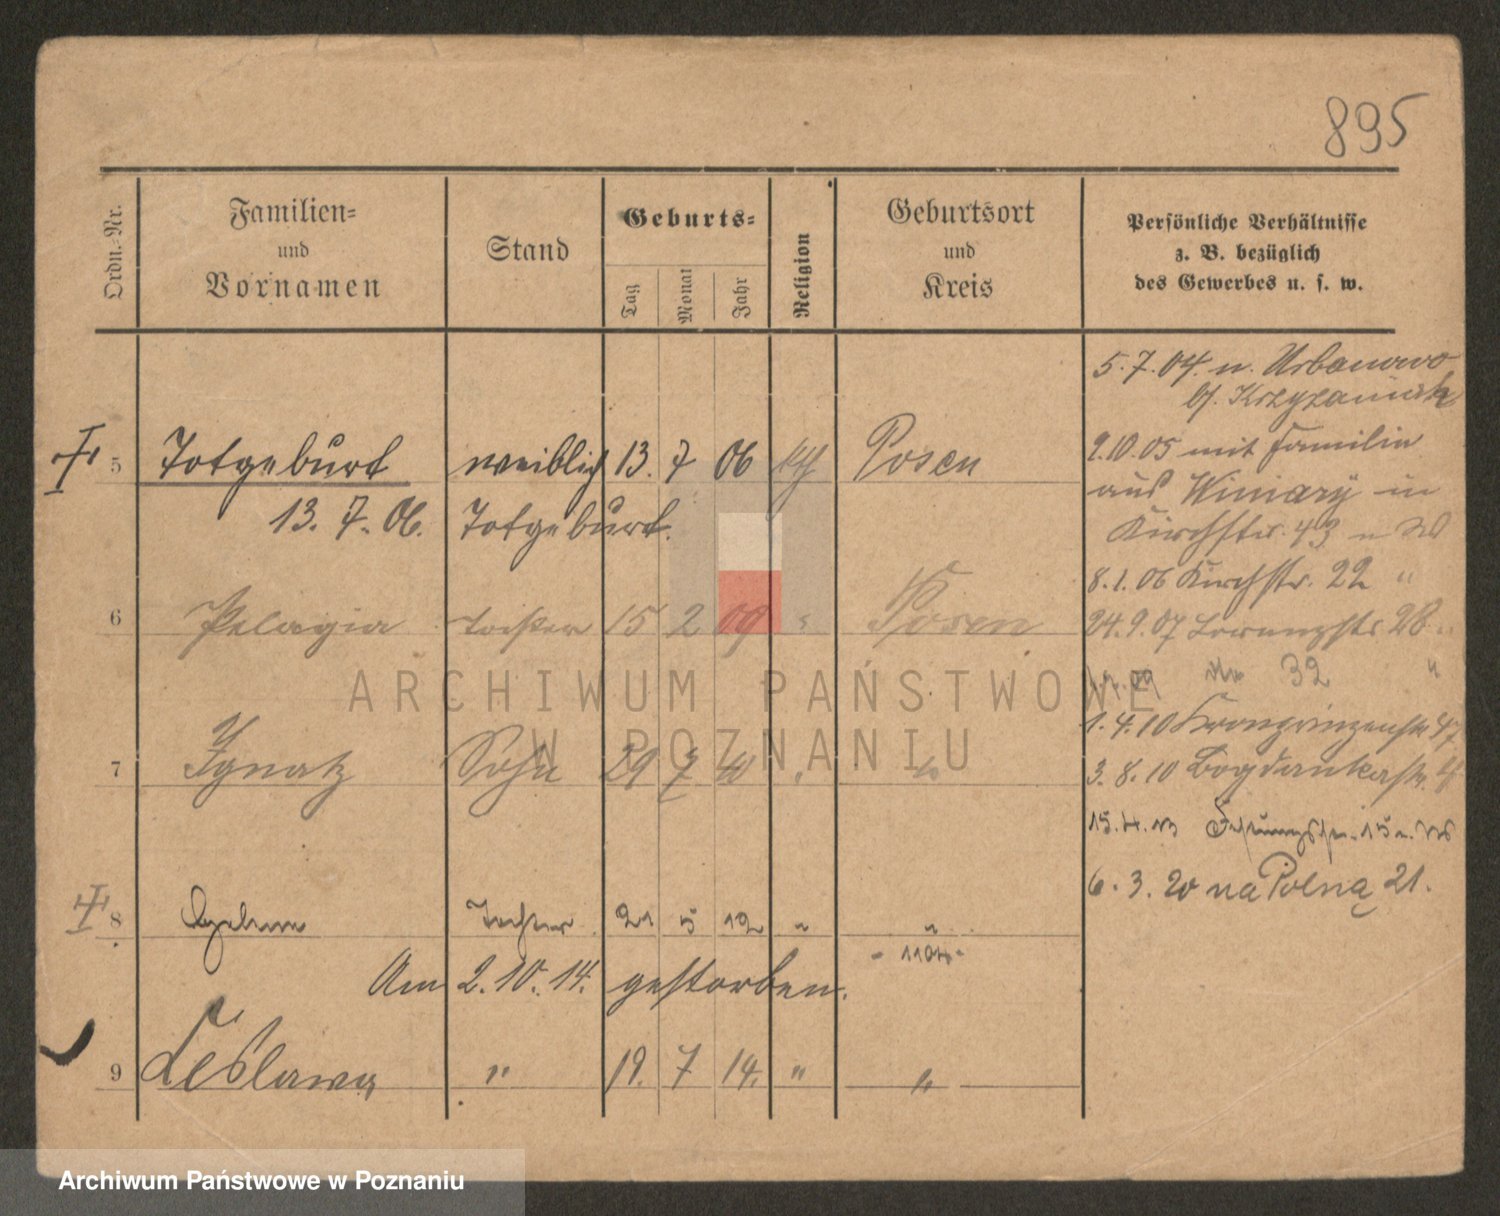 895
Ordn.-Nr.
Familien-
und
Vornamen
Stand
Geburts-
Tag
Monat
Jahr
Religion
Geburtsort
und
Kreis
Persönliche Verhältnisse
z. B. bezüglich
des Gewerbes u. s. w.
5.7.04. n. Urbanowo
b/. Krzyżaniak
5 Totgeburt weiblich 13. 7 06 kth Posen
13. 7. 06. Totgeburt.
9.10.05 mit Familie
aus Winiary in
Kirchstr. 43
8.1.06 Kirchstr. 22 "
6 Pelagia Tochter 15 2 09 " Posen
24.9.07 Lorenzstr 28 "
32 "
7 Ignatz Sohn 29 7 10 " "
1.4.10 Kronprinzenstr 47
3.8.10 Bogdankastr.
15.4.13
6.3.20 na Polną 21.
8 Tochter 21 5 12 " "
- 1104 -
Am 2.10.14. gestorben.
9 Lesława " 19. 7 14. " "
ARCHIWUM PAŃSTWOWE
W POZNANIU
Archiwum Państwowe w Poznaniu